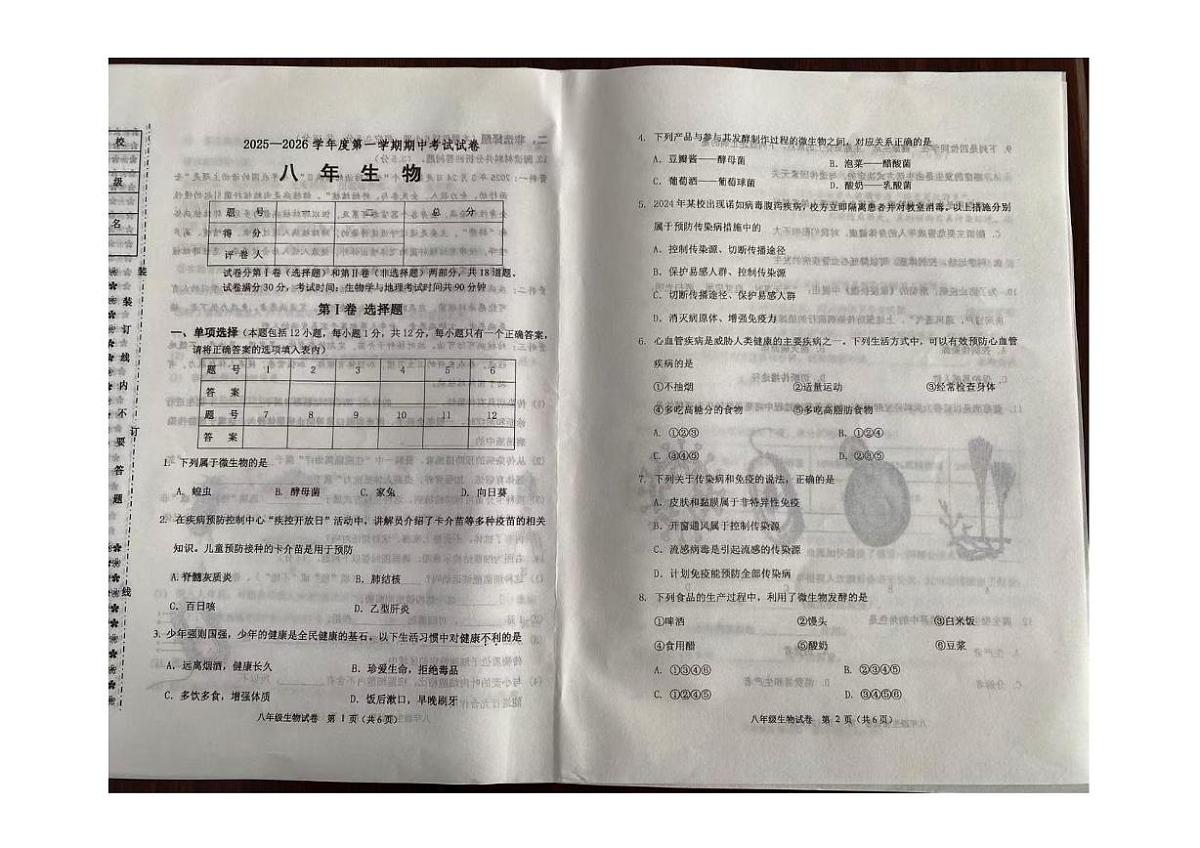 校
级
名
装
订
线
内
不
要
答
题
装
订
线
2025—2026 学年度第一学期期中考试试卷
八 年 生 物
题 号 一 二 总 分
得 分
评 卷 人
试卷分第Ⅰ卷（选择题）和第Ⅱ卷（非选择题）两部分，共18道题。
试卷满分30分，考试时间：生物学与地理考试时间共90分钟
第Ⅰ卷 选择题
一、单项选择（本题包括12小题，每小题1分，共12分，每小题只有一个正确答案，
请将正确答案的选项填入表内）
题 号 1 2 3 4 5 6
答 案
题 号 7 8 9 10 11 12
答 案
1. 下列属于微生物的是
A. 蝗虫 B. 酵母菌 C. 家兔 D. 向日葵
2. 在疾病预防控制中心“疾控开放日”活动中，讲解员介绍了卡介苗等多种疫苗的相关
知识。儿童预防接种的卡介苗是用于预防
A. 脊髓灰质炎 B. 肺结核
C. 百日咳 D. 乙型肝炎
3. 少年强则国强，少年的健康是全民健康的基石。以下生活习惯中对健康不利的是
A. 远离烟酒，健康长久 B. 珍爱生命，拒绝毒品
C. 多饮多食，增强体质 D. 饭后漱口，早晚刷牙
八年级生物试卷 第 1 页（共6页）
4. 下列产品与参与其发酵制作过程的微生物之间，对应关系正确的是
A. 豆瓣酱——酵母菌 B. 泡菜——醋酸菌
C. 葡萄酒——葡萄球菌 D. 酸奶——乳酸菌
5. 2024年某校出现诺如病毒腹泻疾病，校方立即隔离患者并对教室消毒。以上措施分别
属于预防传染病措施中的
A. 控制传染源、切断传播途径
B. 保护易感人群、控制传染源
C. 切断传播途径、保护易感人群
D. 消灭病原体、增强免疫力
6. 心血管疾病是威胁人类健康的主要疾病之一。下列生活方式中，可以有效预防心血管
疾病的是
①不抽烟 ②适量运动 ③经常检查身体
④多吃高糖分的食物 ⑤多吃高脂肪食物
A. ①②③ B. ①②④
C. ③④⑤ D. ②③⑤
7. 下列关于传染病和免疫的说法，正确的是
A. 皮肤和黏膜属于非特异性免疫
B. 开窗通风属于控制传染源
C. 流感病毒是引起流感的传染源
D. 计划免疫能预防全部传染病
8. 下列食品的生产过程中，利用了微生物发酵的是
①啤酒 ②馒头 ③白米饭
④食用醋 ⑤酸奶 ⑥豆浆
A. ①③④⑥ B. ②③④⑤
C. ①②④⑤ D. ③④⑤⑥
八年级生物试卷 第 2 页（共6页）